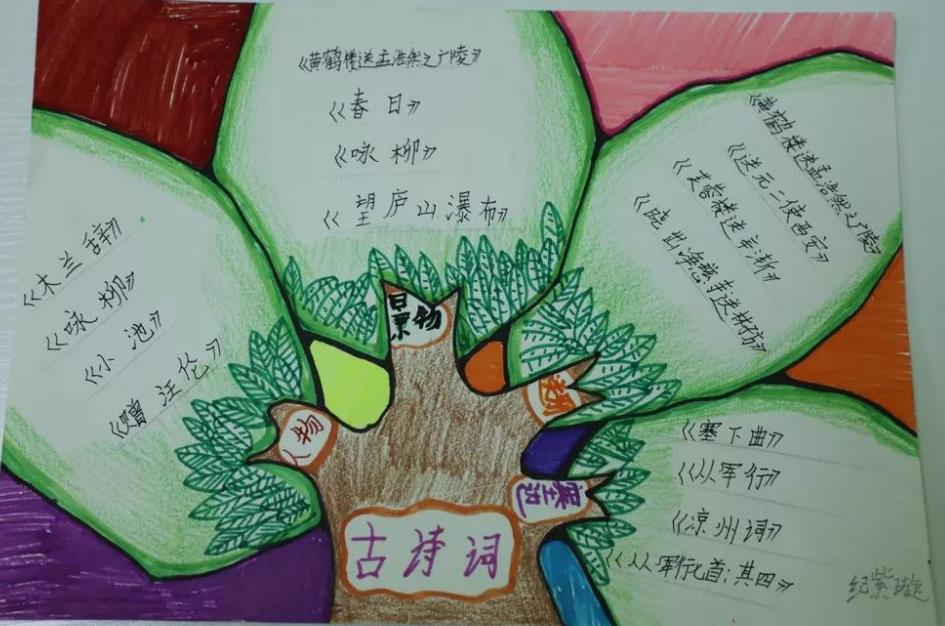 《黄鹤楼送孟浩然之广陵》
《春日》
《咏柳》
《望庐山瀑布》
景物
《木兰辞》
《咏柳》
《小池》
《赠汪伦》
人物
《黄鹤楼送孟浩然之广陵》
《送元二使西安》
《芙蓉楼送辛渐》
《晓出净慈寺送林子方》
《塞下曲》
《从军行》
《凉州词》
《从军行七首：其四》
边塞
古诗词
纪紫璇